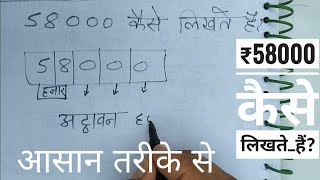 58000 कैसे लिखते हैं?
58000
हजार
अट्ठावन ह
₹58000
कैसे
लिखते_हैं?
आसान तरीके से